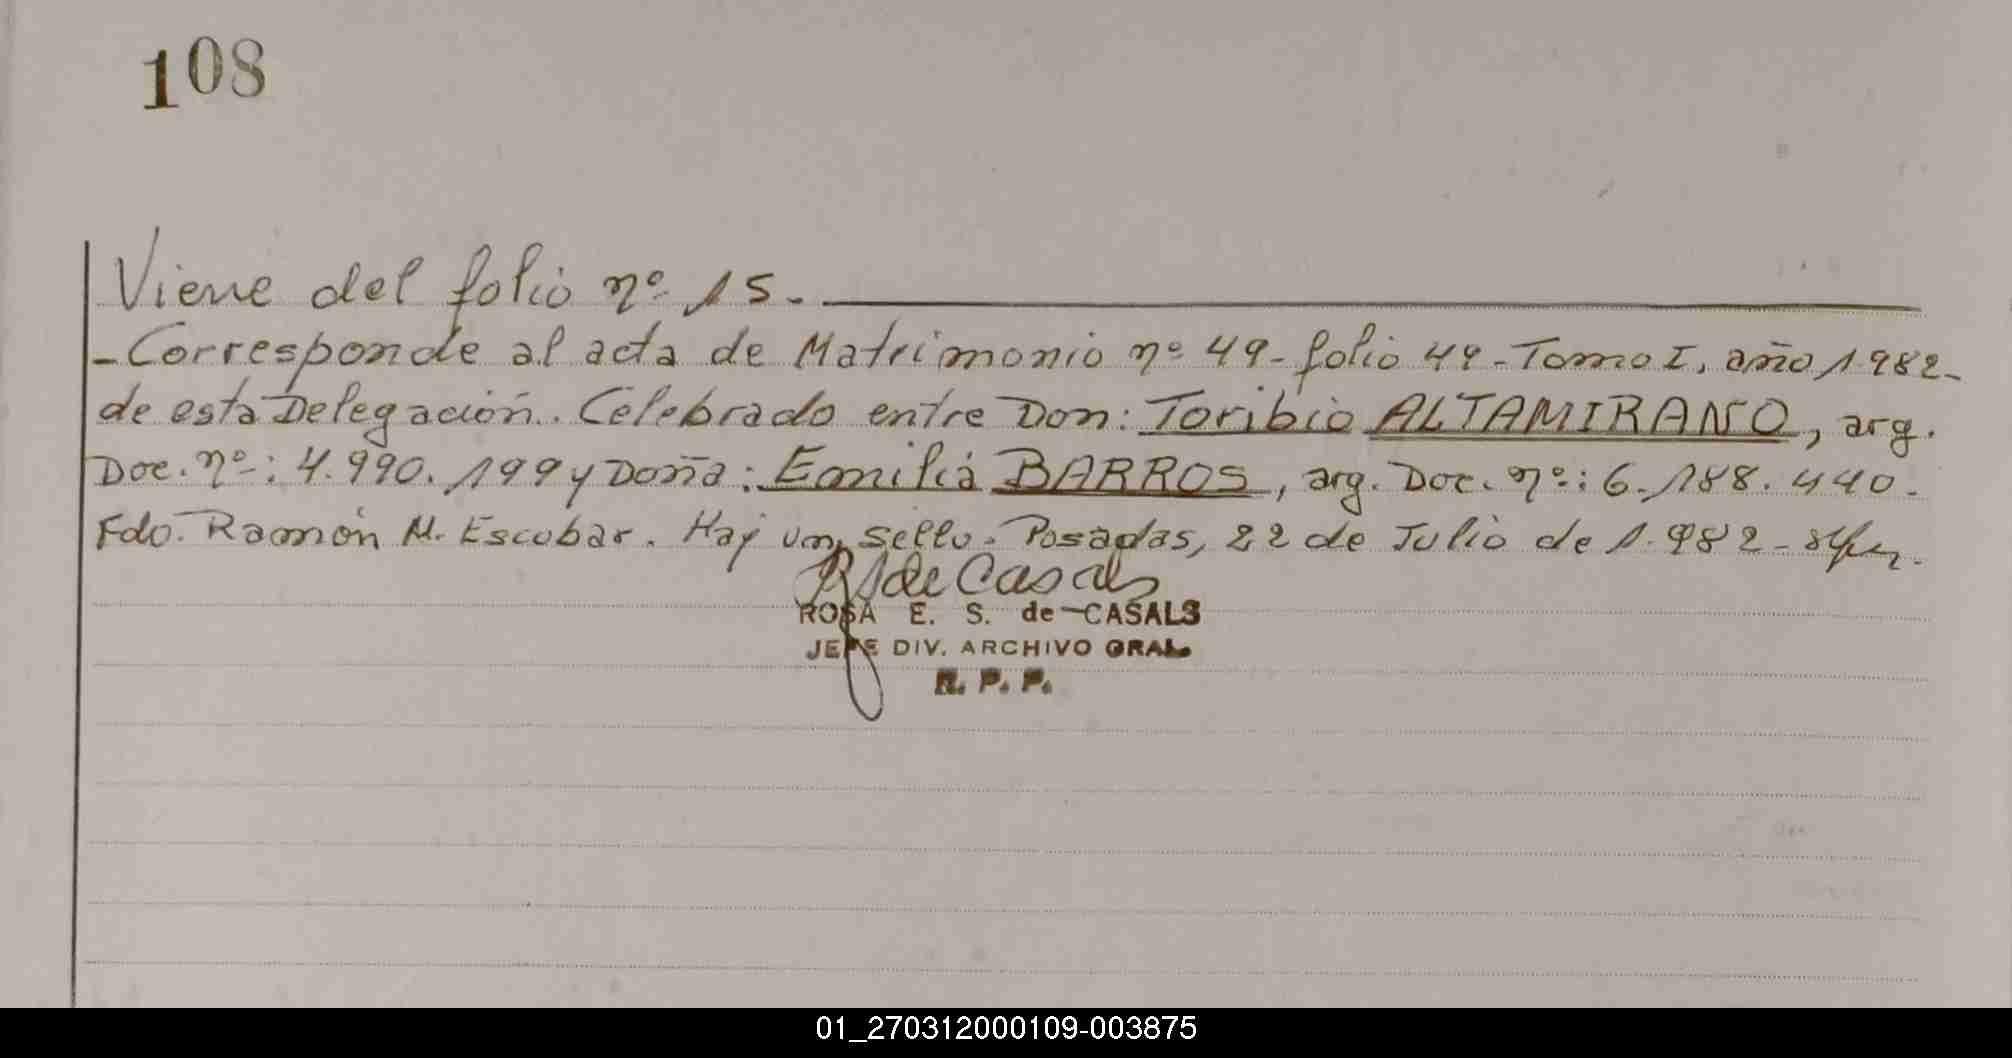 108
Viene del folio nº 15.
-Corresponde al acta de Matrimonio nº 49- folio 49-Tomo I, año 1.982-
de esta Delegación. Celebrado entre Don: Toribio ALTAMIRANO, arg.
Doc. nº: 4.990.199 y Doña: Emilia BARROS, arg. Doc. nº: 6.188.440.
Fdo. Ramón M. Escobar. Hay un sello. Posadas, 22 de Julio de 1.982-
R de Casals
ROSA E. S. de CASALS
JEFE DIV. ARCHIVO GRAL.
R. P. P.
01_270312000109-003875